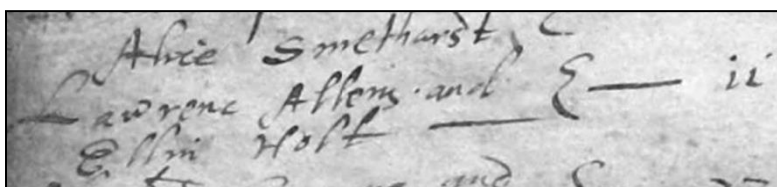 Alice Smetharst
Lawrenc Allens and } — ii
Ellin Holt —
and